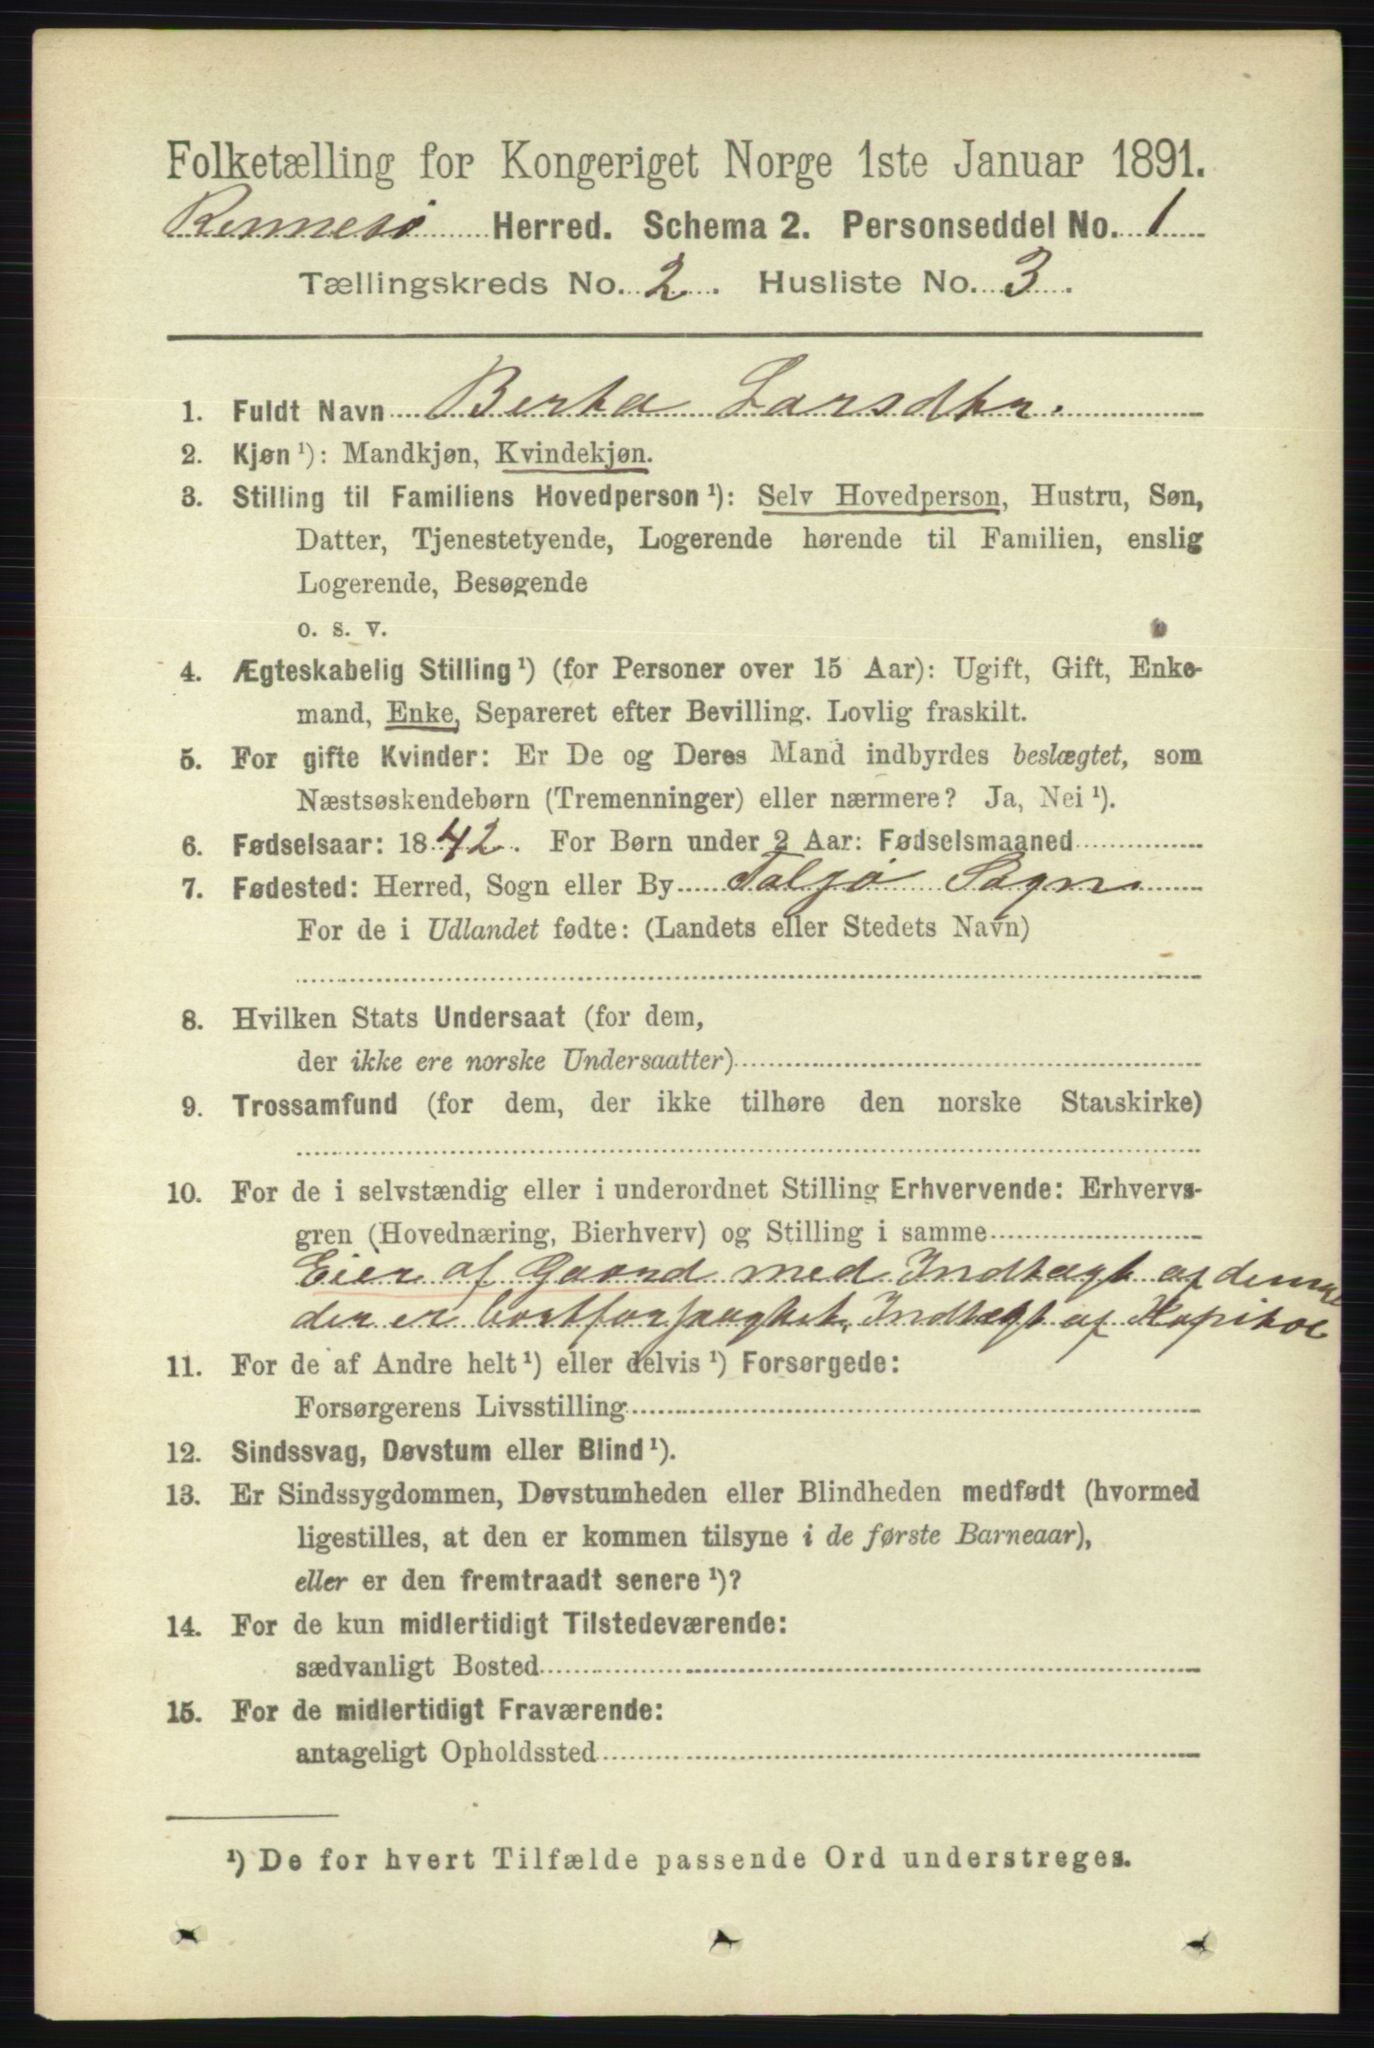 Folketælling for Kongeriget Norge 1ste Januar 1891.
Rennesö Herred. Schema 2. Personseddel No. 1
Tællingskreds No. 2. Husliste No. 3.
1. Fuldt Navn Berta Larsdtr.
2. Kjøn ¹): Mandkjøn, Kvindekjøn.
3. Stilling til Familiens Hovedperson ¹): Selv Hovedperson, Hustru, Søn,
Datter, Tjenestetyende, Logerende hørende til Familien, enslig
Logerende, Besøgende
o. s. v.
4. Ægteskabelig Stilling ¹) (for Personer over 15 Aar): Ugift, Gift, Enke-
mand, Enke, Separeret efter Bevilling. Lovlig fraskilt.
5. For gifte Kvinder: Er De og Deres Mand indbyrdes beslægtet, som
Næstsøskendebørn (Tremenninger) eller nærmere? Ja, Nei ¹).
6. Fødselsaar: 1842. For Børn under 2 Aar: Fødselsmaaned
7. Fødested: Herred, Sogn eller By Taljö Sogn
For de i Udlandet fødte: (Landets eller Stedets Navn)
8. Hvilken Stats Undersaat (for dem,
der ikke ere norske Undersaatter)
9. Trossamfund (for dem, der ikke tilhøre den norske Statskirke)
10. For de i selvstændig eller i underordnet Stilling Erhvervende: Erhvervs-
gren (Hovednæring, Bierhverv) og Stilling i samme
Eier af Gaard med Indtægt af denne
der er bortforpagtet, Indtægt af Kapital
11. For de af Andre helt ¹) eller delvis ¹) Forsørgede:
Forsørgerens Livsstilling
12. Sindssvag, Døvstum eller Blind ¹).
13. Er Sindssygdommen, Døvstumheden eller Blindheden medfødt (hvormed
ligestilles, at den er kommen tilsyne i de første Barneaar),
eller er den fremtraadt senere ¹)?
14. For de kun midlertidigt Tilstedeværende:
sædvanligt Bosted
15. For de midlertidigt Fraværende:
antageligt Opholdssted
¹) De for hvert Tilfælde passende Ord understreges.